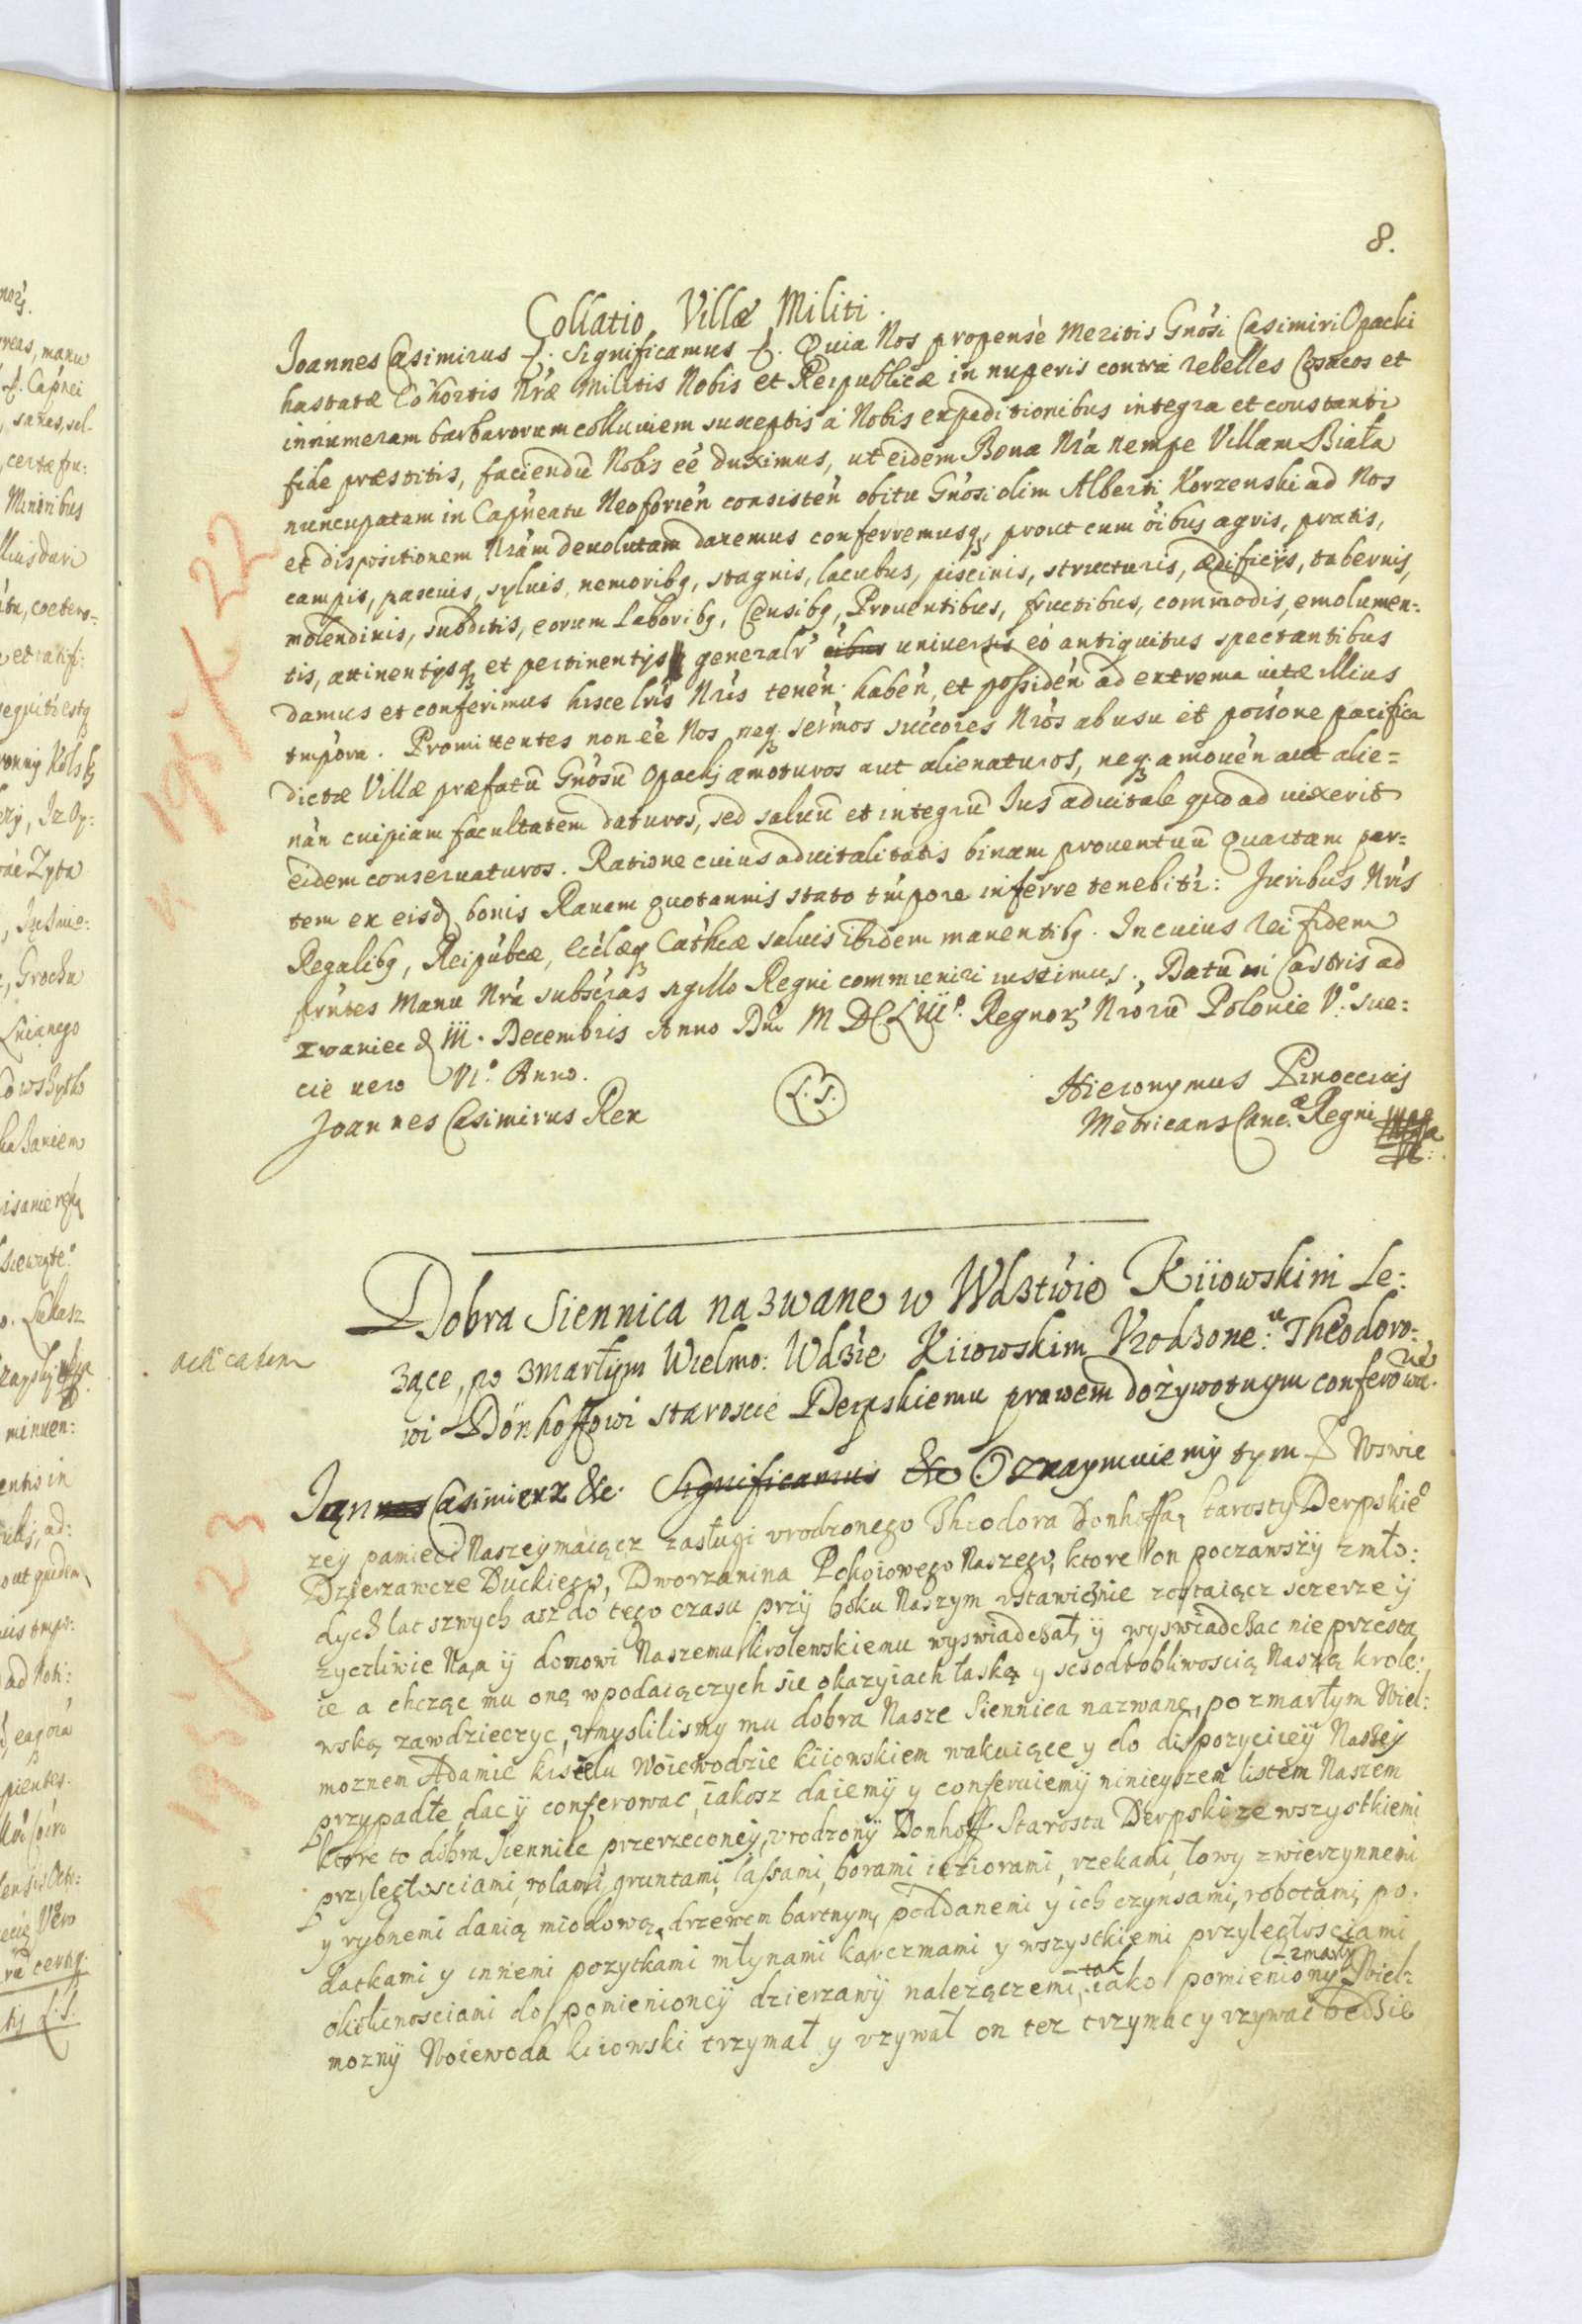 8.
Collatio Villæ Militi.
Joannes Casimirus f. Significamus f. Quia Nos propensè Meritis Gnõsi Casimiri Opacki
hastatæ Cohortis Nrӕ Militis Nobis et Reipublicæ in nuperis contrà rebelles Cosacos et
innumeram barbarorum colluviem susceptis á Nobis expeditionibus integra et constanti
fide præstitis, faciendũ Nobis eẽ duximus, ut eidem Bona Nrã nempe Villam Biała
nuncupatam in Capñeatu Neoforień consisteń obitu Gnõsi olim Alberti Korzenski ad Nos
et dispositionem Nrãm devolutam daremus conferremusq, prout cum õibus agris, pratis,
campis, pascuis, syluis, nemoribq, stagnis, lacubus, piscinis, structuris, ædificijs, tabernis,
molendinis, subditis, eorum Laboribq, Censibq, Prouentibus, fructibus, commodis, emolumen=
tis, attinentijsq et pertinentijs generalr̃ universis eò antiquitus spectantibus
damus et conferimus hisce lrĩs Nrĩs teneń. habeń, et possideń ad extrema vitæ illius
tmp̃ora. Promittentes non eẽ Nos neq serm̃os succõres Nrõs ab usu et poss̃ione pacifica
dictæ Villæ præfatũ Gnõsũ Opackj amoturos aut alienaturos, neq amoueń aut alie=
nań cuipiam facultatem daturos, sed saluũ et integrũ Ius aduitale quoad uixerit
eidem conseruaturos. Ratione cuius aduitalitatis binam prouentuũ Quartam par=
tem ex eisd bonis Rauam quotannis stato tmp̃ore inferre tenebitr̃: Juribus Nrĩs
Regalibq, Reipub̃cæ, Ecc̃læq Cath̃cæ saluis ibidem manentibq. In cuius rei fidem
prñtes Manu Nrã subscr̃as sigillo Regni communiri iussimus. Datũ in Castris ad
Zwaniec d III. Decembris Anno Dni M DC LIII°. Regnor Nrorũ Poloniæ V.° Sue=
ciæ vero VI.° Anno.
Joannes Casimirus Rex
L.S.
Hieronymus Pinoccius
Metricans Canc.æ Regni
Dobra Siennica nazwane w Wdztwie Kiiowskim Le:
zące, po zmartym Wielmo: Wdzie Kiiowskim Vrodzone: Theodoro=
wi Dönhoffowi staroscie Derpskiemu prawem dożywotnym conferowa
ne
Act. eadem
Jan Casimierz &c. Significamus &c Oznaymuiemy tym f Wswie
zey pamieci Naszey maiącz zasługi vrodzonego Theodora Donhoffa, starosty Derpskie°
Dzierzawcze Duckiego, Dworzanina Pokoiowego Naszego, ktore on poczawszy zmło:
dych lat szwych asz do tego czasu przy boku Naszym vstawicznie zostaiącz sczerze y
zyczliwie Nam y domowi Naszemu krolewskiemu wyswiadczał, y wyswiadczac nie przesta
ie a chcząc mu oną wpodaiączych sie okazyiach łaską y sczodrobliwoscią Naszą krole:
wską zawdzieczyc, vmyslilismy mu dobra Nasze Siennica nazwane, po zmartym Wiel:
moznem Adamie kisielu Woiewodzie kiiowskiem wakuiące y do dispozyciey Naszey
przypadłe, dac y conferowac, iakosz daiemy y conferuiemy ninieyszem listem Naszem
ktore to dobra Siennice przerzeconey, vrodzony Donhoff Starosta Derpski ze wszystkiemi
przyległosciami, rolami, gruntami, lassami, borami ieziorami, rzekami, łowy zwierzynnemi
y rybnemi danią miodową, drzewem bartnym, poddanemi y ich czynsami, robotami, po.
datkami y innemi pozytkami młynami karczmami y wszystkiemi przyległosciami
okolicznosciami do pomienioney dzierzawy nalezączemi, tak iako pomieniony zmarły Wiel=
mozny Woiewoda kiiowski trzymał y vzywał on tez trzymac y vzywac bedzie